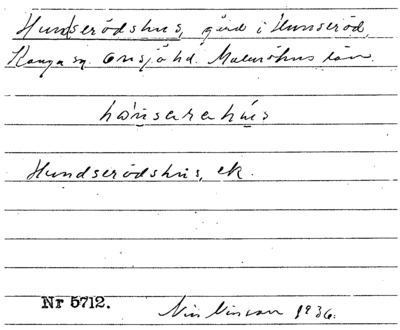 Hundserödshus, gård i Hunseröd,
Konga sn. Onsjö hd. Malmöhus län.
hónsarahús
Hundserödshus, ek.
Nr 5712. 1936.